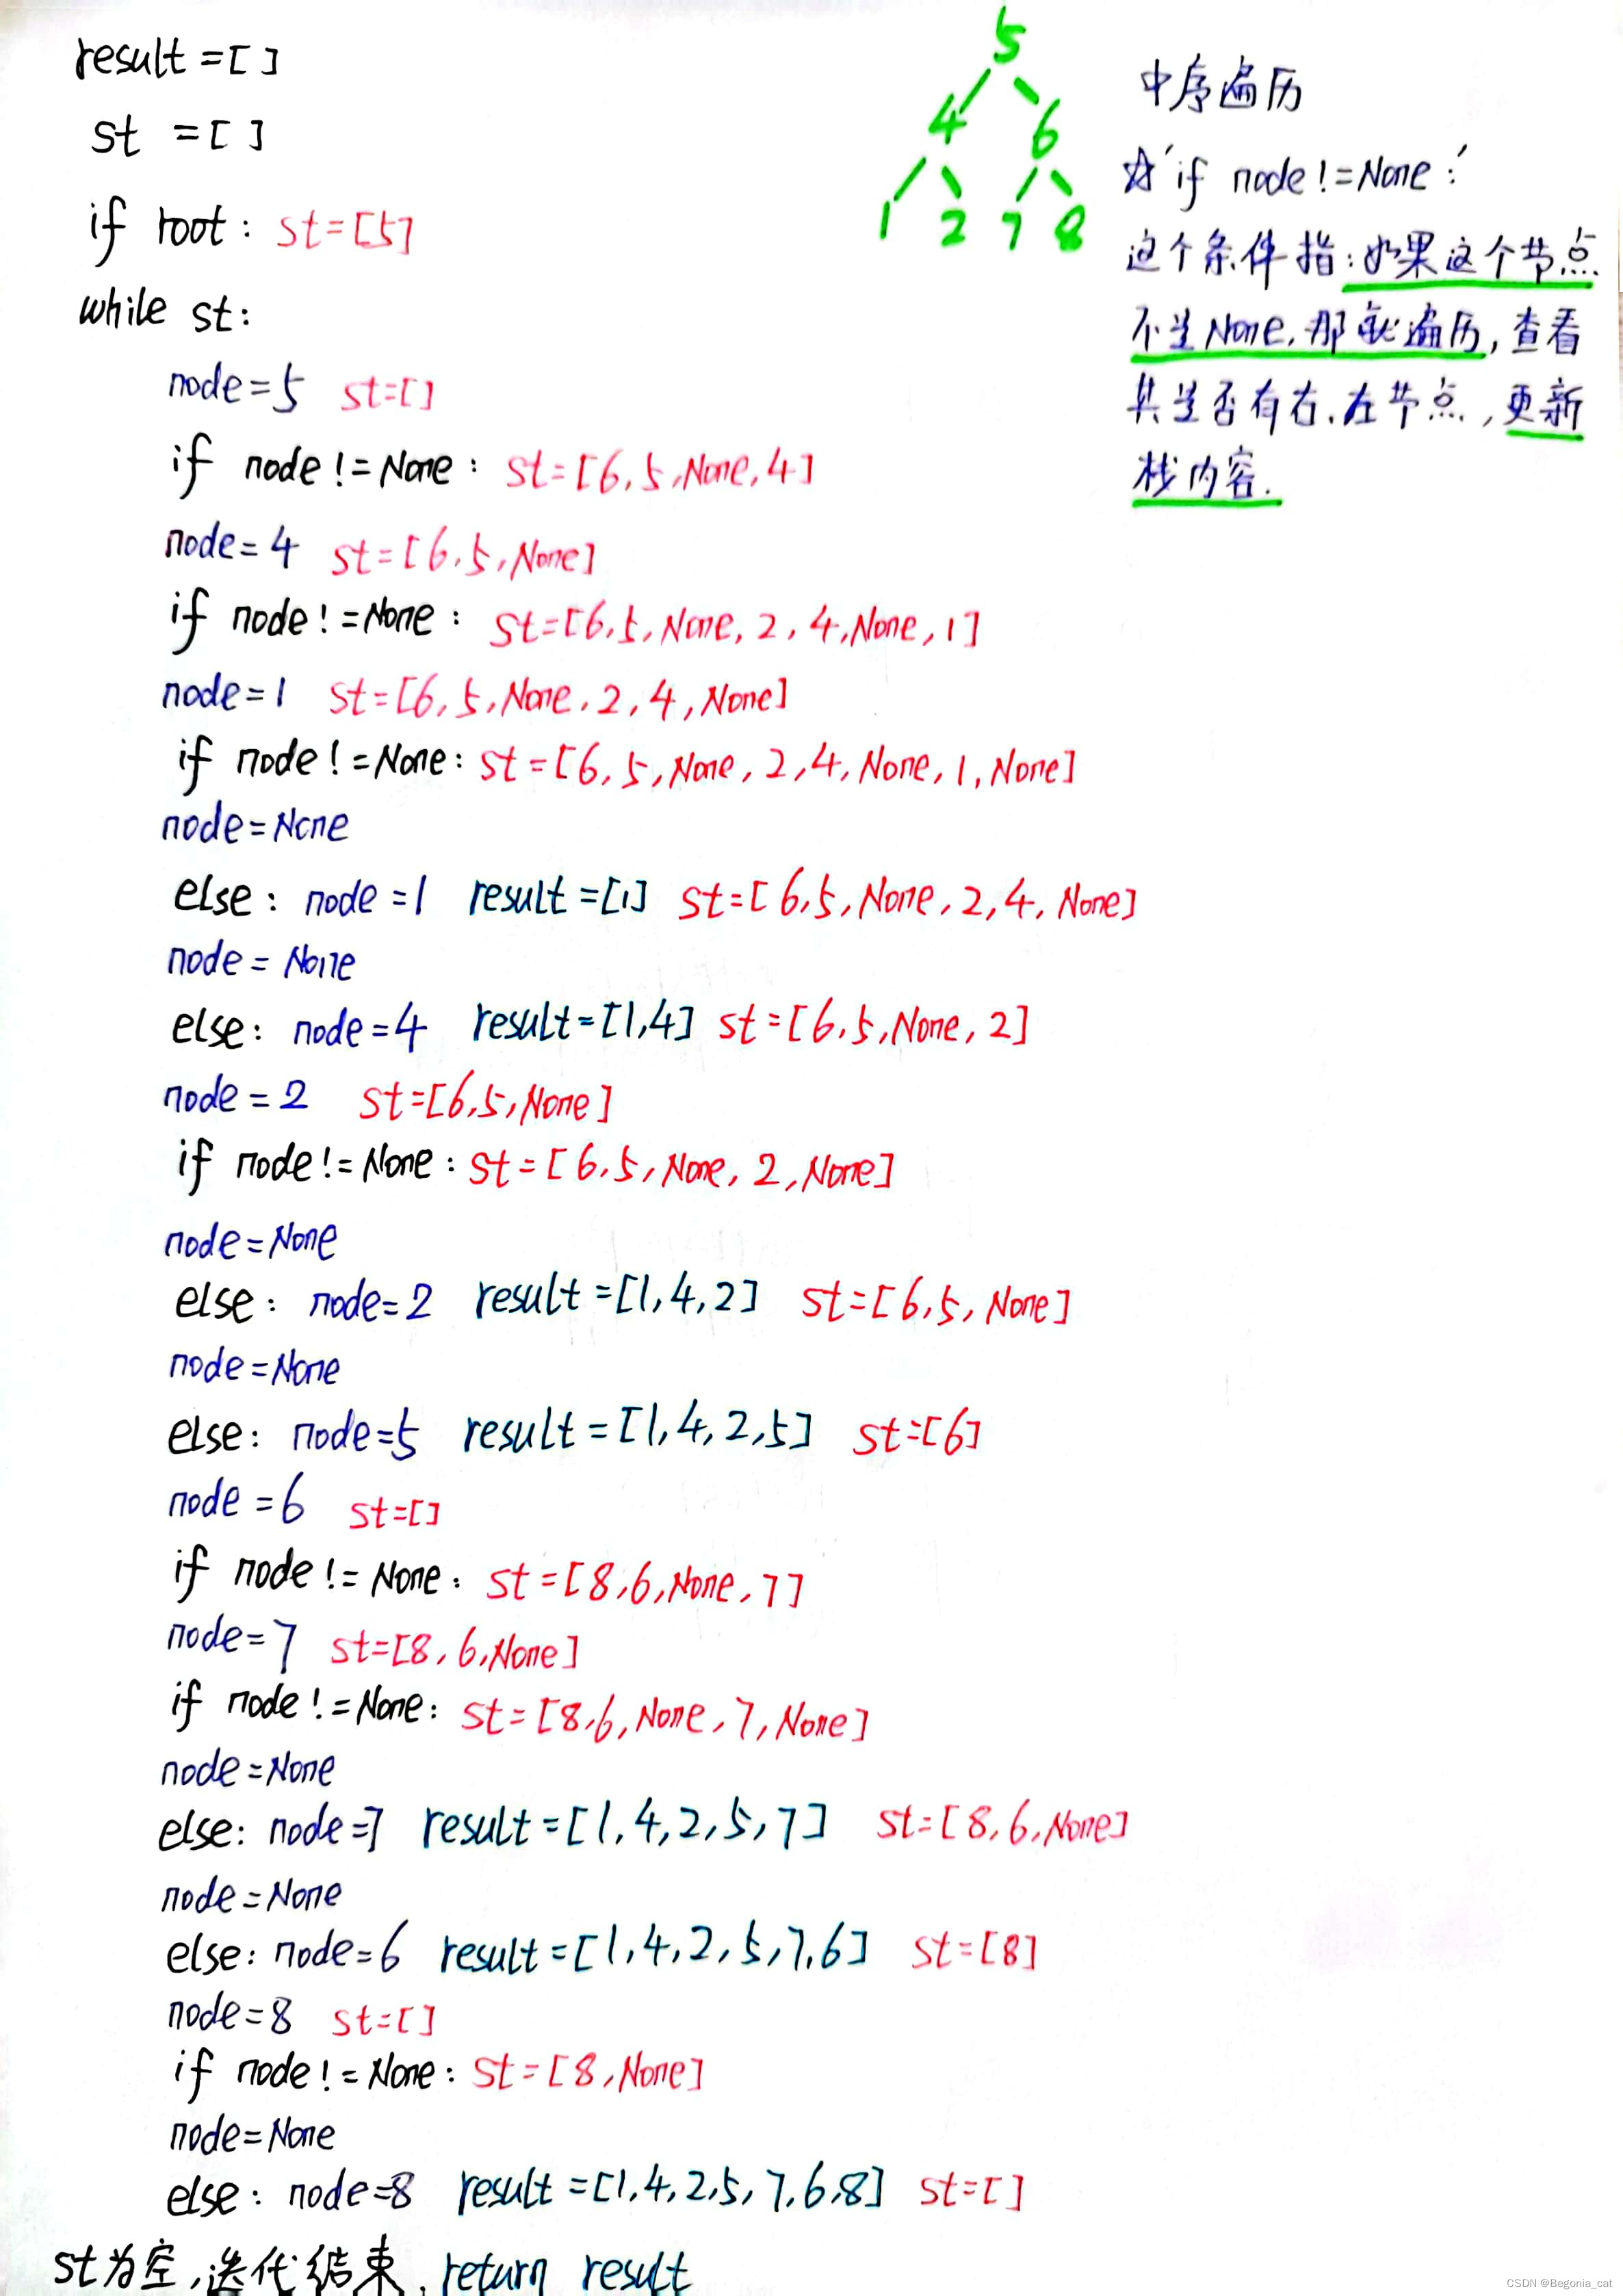 result =[]
st =[]
if root: st=[5]
while st:
node=5 st=[]
if node !=None: st=[6,5,None,4]
node=4 st=[6,5,None]
if node !=None: st=[6,5,None,2,4,None,1]
node=1 st=[6,5,None,2,4,None]
if node !=None: st=[6,5,None,2,4,None,1,None]
node=None
else: node=1 result=[1] st=[6,5,None,2,4,None]
node=None
else: node=4 result=[1,4] st=[6,5,None,2]
node=2 st=[6,5,None]
if node!=None: st=[6,5,None,2,None]
node=None
else: node=2 result=[1,4,2] st=[6,5,None]
node=None
else: node=5 result=[1,4,2,5] st=[6]
node=6 st=[]
if node !=None: st=[8,6,None,7]
node=7 st=[8,6,None]
if node !=None: st=[8,6,None,7,None]
node=None
else: node=7 result=[1,4,2,5,7] st=[8,6,None]
node=None
else: node=6 result=[1,4,2,5,7,6] st=[8]
node=8 st=[]
if node !=None: st=[8,None]
node=None
else: node=8 result=[1,4,2,5,7,6,8] st=[]
st为空,迭代结束,return result
5
4 6
1 2 7 8
中序遍历
☆'if node !=None:'
这个条件指:如果这个节点
不是None,那就遍历,查看
其是否有右、左节点,更新
栈内容.
CSDN @Begonia_cat